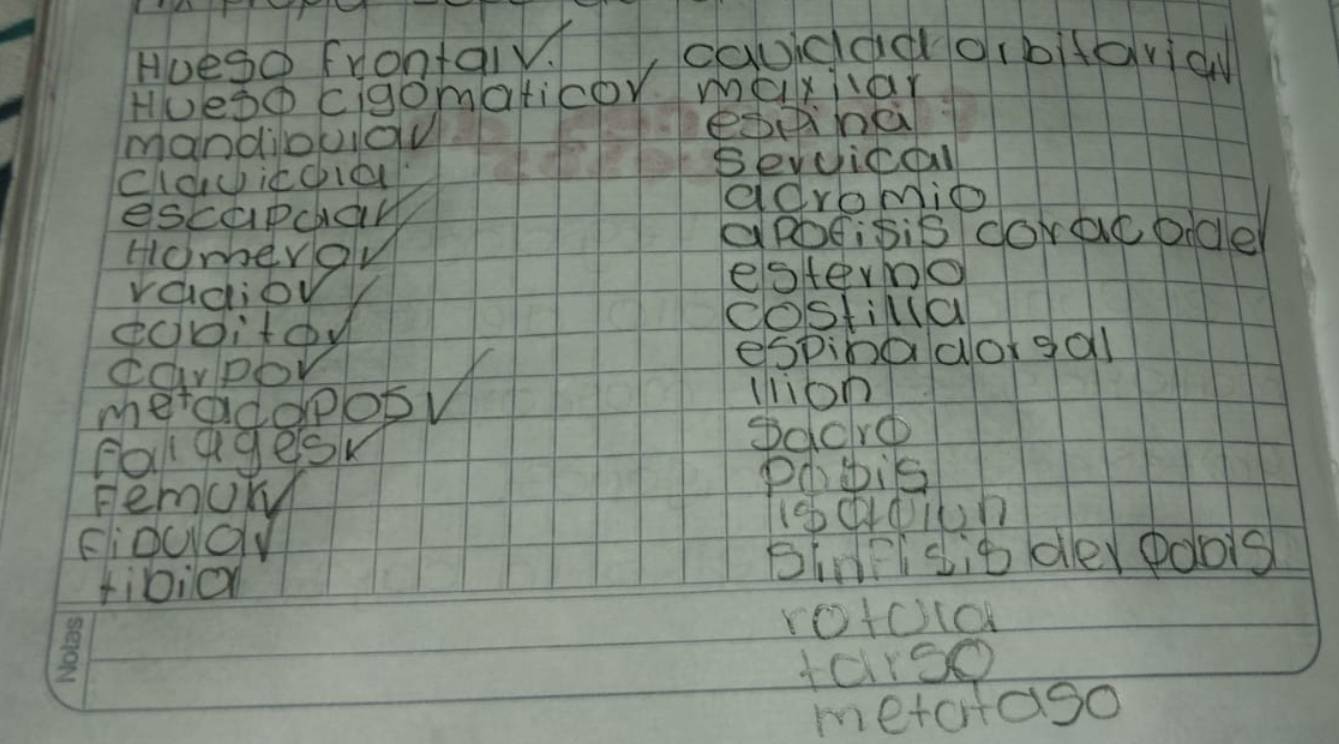 Hueso frontal
Hueso cigomatico
mandibula
clavicula
escapula
Humero
radio
cubito
carpo
metacapos
Falages
Femur
Fibula
tibia
cavidad orbitaria
maxilar
espina
servical
acromio
apofisis coracoide
esterno
costilla
espina dorsal
Ilion
sacro
pubis
sinfisis del pubis
rotula
tarso
metataso
Notas